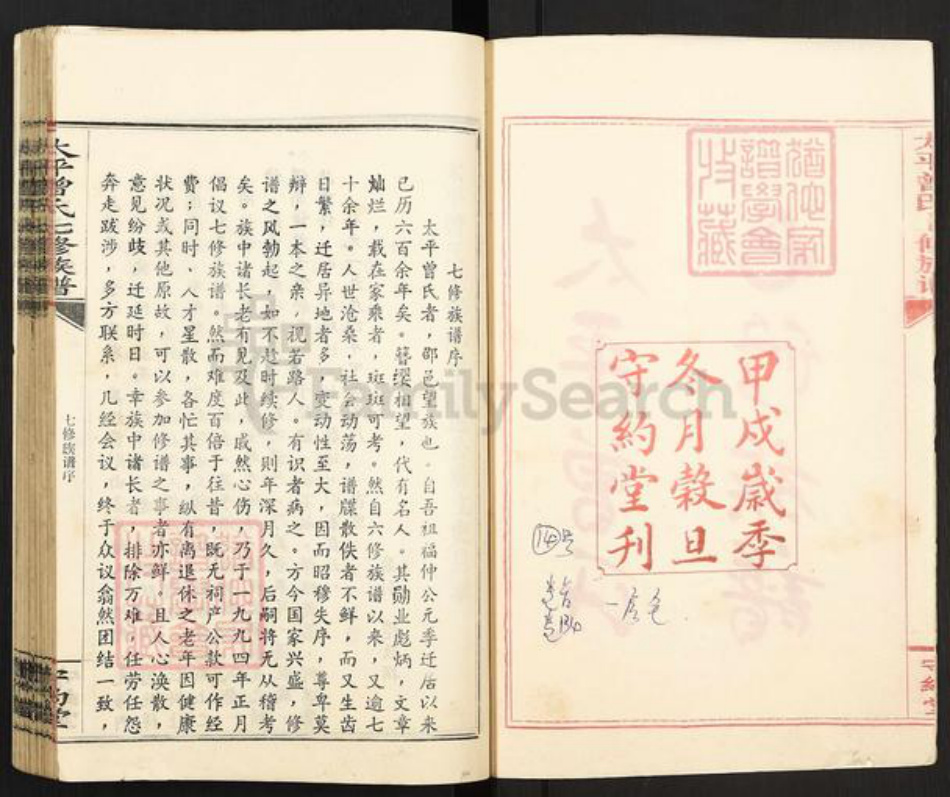 甲戌歲季
冬月榖旦
守約堂刊
猶他家
譜學會
收藏
14号
一店色
太平曾氏七修族谱
七修族谱序
七修族谱序
太平曾氏者，邵邑望族也。自吾祖福仲公元季迁居以来
已历六百余年矣。簪缨相望，代有名人。其勋业彪炳，文章
灿烂，载在家乘者，斑斑可考。然自六修族谱以来，又逾七
十余年。人世沧桑，社会动荡，谱牒散佚者不鲜，而又生齿
日繁，迁居异地者多，变动性至大，因而昭穆失序，尊卑莫
辩，一本之亲，视若路人。有识者病之。方今国家兴盛，修
谱之风勃起，如不赴时续修，则年深月久，后嗣将无从稽考
矣。族中诸长老有见及此，戚然心伤，乃于一九九四年正月
倡议七修族谱。然而难度百倍于往昔，既无祠产公款可作经
费；同时、人才星散，各忙其事，纵有离退休之老年因健康
状况或其他原故，可以参加修谱之事者亦鲜。且人心涣散，
意见纷歧，迁延时日。幸族中诸长者，排除万难，任劳任怨
奔走跋涉，多方联系，几经会议，终于众议翕然团结一致，
FamilySearch